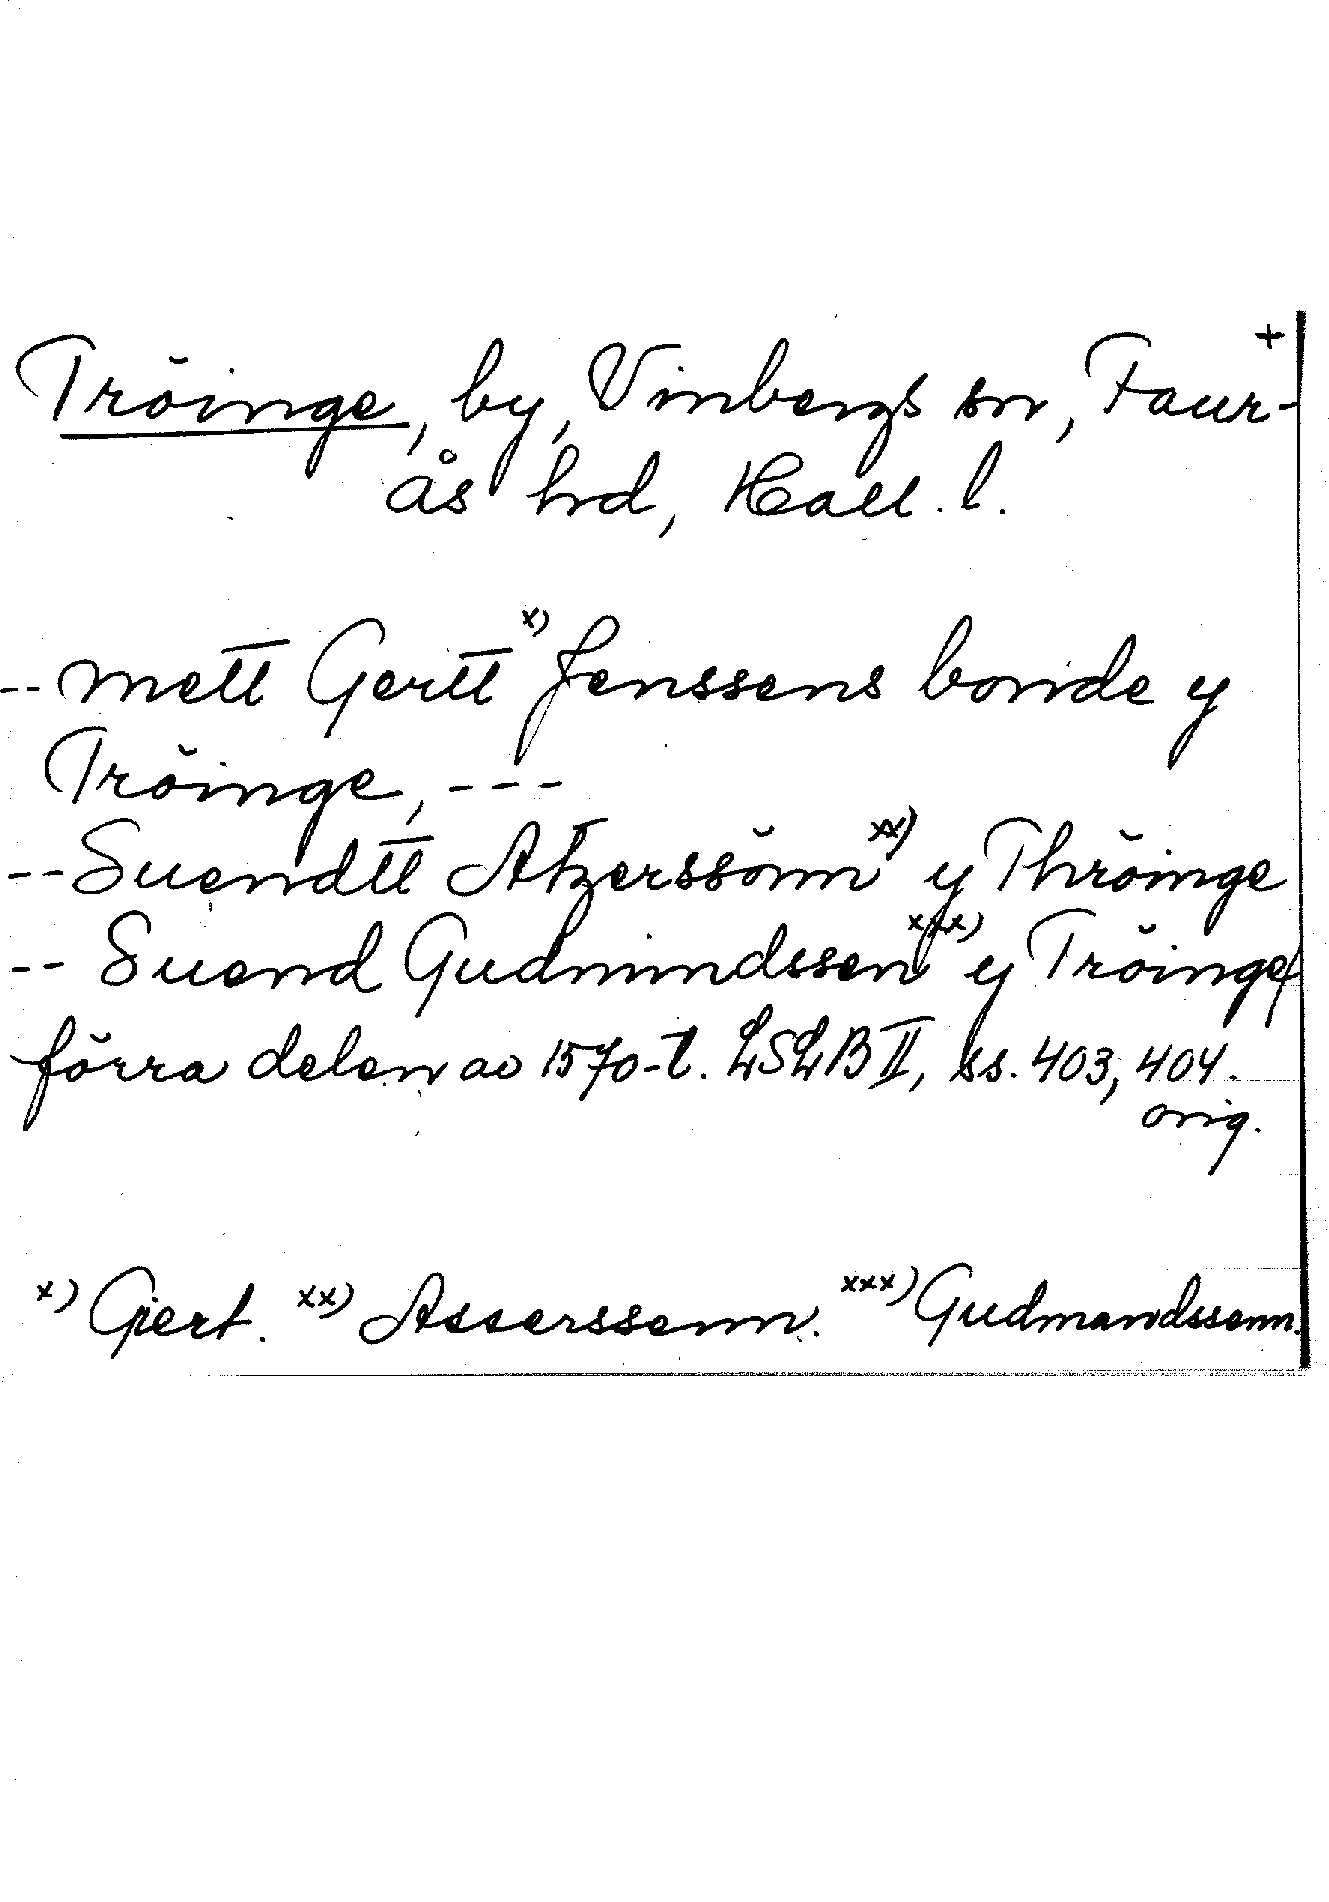 +
Tröinge, by, Vinbergs sn, Faur-
ås hrd, Hall. l.
-- mett Gertt x) Jenssens bonde y
Tröinge, ---
-- Suendtt Atzerssönn xx) y Thröinge
-- Suend Gudmindssen xxx) y Tröinge/
förra delen av 1570-t. LSLB II, ss. 403, 404.
orig.
x) Giert. xx) Asserssenn. xxx) Gudmandssenn.